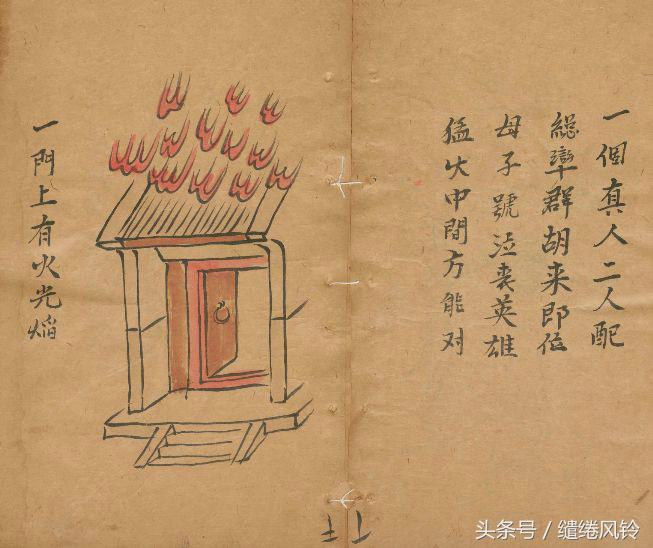 一個真人二人配
總率群胡来即位
母子號泣喪英雄
猛火中間方能对
一門上有火光焰
头条号／缱绻风铃